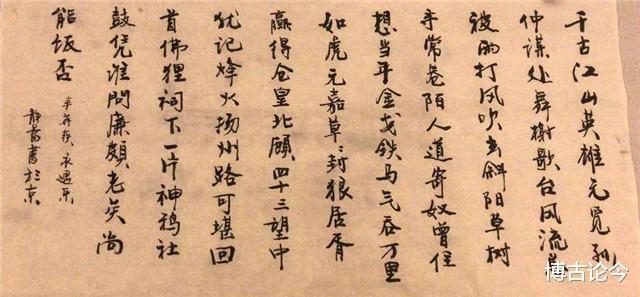 千古江山英雄无觅孙
仲谋处舞榭歌台风流总
被雨打风吹去斜阳草树
寻常巷陌人道寄奴曾住
想当年金戈铁马气吞万里
如虎元嘉草〻封狼居胥
赢得仓皇北顾四十三望中
犹记烽火扬州路可堪回
首佛狸祠下一片神鸦社
鼓凭谁问廉颇老矣尚
能饭否
辛弃疾永遇乐
书於京
博古论今